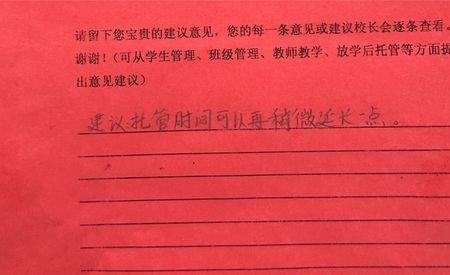 请留下您宝贵的建议意见，您的每一条意见或建议校长会逐条查看。
谢谢！（可从学生管理、班级管理、教师教学、放学后托管等方面提
出意见建议）
建议托管时间可以再稍微延长一点。